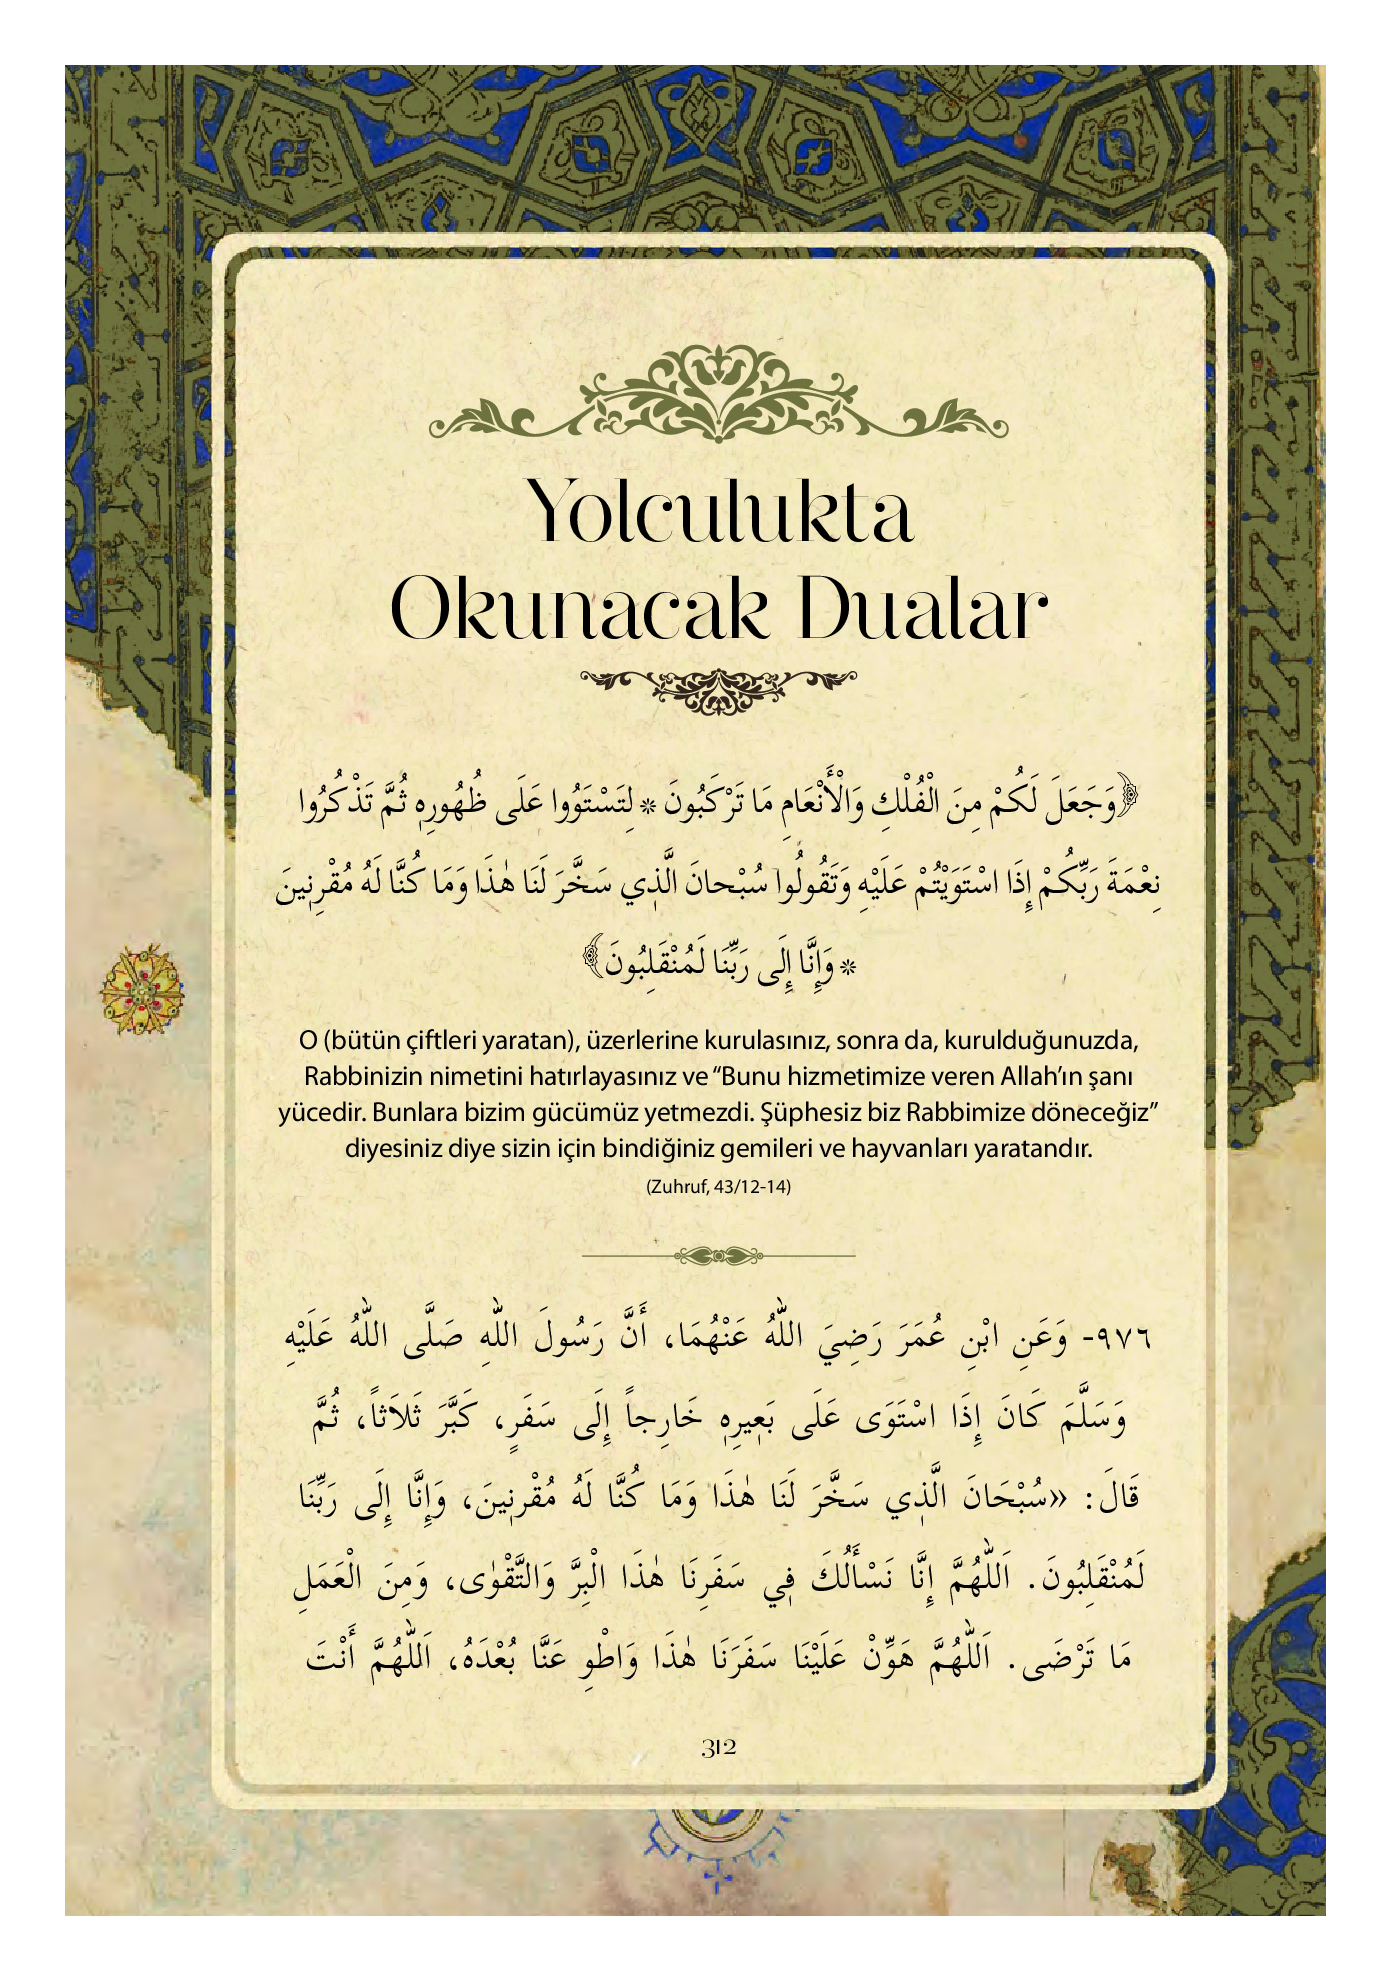 Yolculukta
Okunacak Dualar
﴿وَجَعَلَ لَكُمْ مِنَ الْفُلْكِ وَالْأَنْعَامِ مَا تَرْكَبُونَ * لِتَسْتَوُوا عَلَى ظُهُورِهِ ثُمَّ تَذْكُرُوا
نِعْمَةَ رَبِّكُمْ إِذَا اسْتَوَيْتُمْ عَلَيْهِ وَتَقُولُوا سُبْحانَ الَّذِي سَخَّرَ لَنَا هٰذَا وَمَا كُنَّا لَهُ مُقْرِنِينَ
* وَإِنَّا إِلَى رَبِّنَا لَمُنْقَلِبُونَ﴾
O (bütün çiftleri yaratan), üzerlerine kurulasınız, sonra da, kurulduğunuzda,
Rabbinizin nimetini hatırlayasınız ve “Bunu hizmetimize veren Allah’ın şanı
yücedir. Bunlara bizim gücümüz yetmezdi. Şüphesiz biz Rabbimize döneceğiz”
diyesiniz diye sizin için bindiğiniz gemileri ve hayvanları yaratandır.
(Zuhruf, 43/12-14)
٩٧٦- وَعَنِ ابْنِ عُمَرَ رَضِيَ اللّٰهُ عَنْهُمَا، أَنَّ رَسُولَ اللّٰهِ صَلَّى اللّٰهُ عَلَيْهِ
وَسَلَّمَ كَانَ إِذَا اسْتَوَى عَلَى بَعِيرِهِ خَارِجاً إِلَى سَفَرٍ، كَبَّرَ ثَلاَثاً، ثُمَّ
قَالَ: «سُبْحَانَ الَّذِي سَخَّرَ لَنَا هٰذَا وَمَا كُنَّا لَهُ مُقْرِنِينَ، وَإِنَّا إِلَى رَبِّنَا
لَمُنْقَلِبُونَ. اَللّٰهُمَّ إِنَّا نَسْأَلُكَ فِي سَفَرِنَا هٰذَا الْبِرَّ وَالتَّقْوٰى، وَمِنَ الْعَمَلِ
مَا تَرْضَى. اَللّٰهُمَّ هَوِّنْ عَلَيْنَا سَفَرَنَا هٰذَا وَاطْوِ عَنَّا بُعْدَهُ، اَللّٰهُمَّ أَنْتَ
312